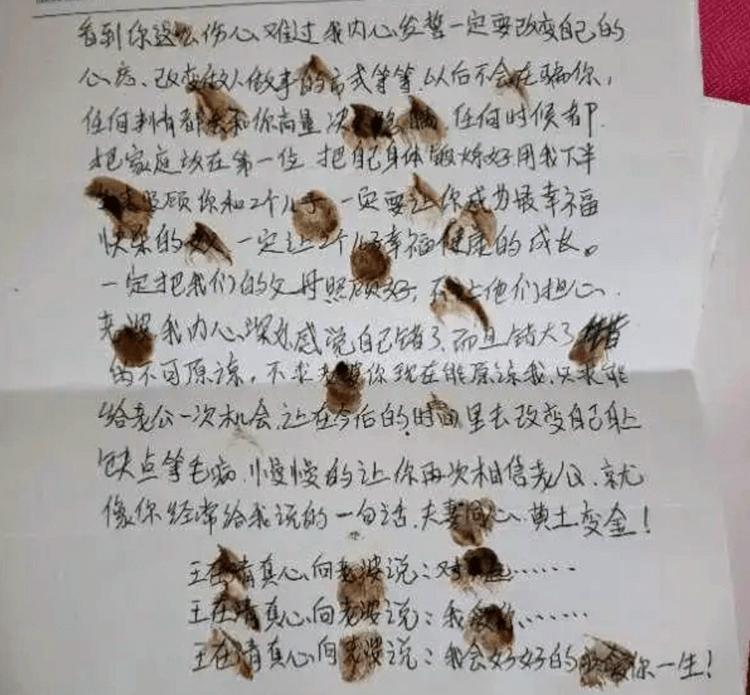 看到你这么伤心难过我内心发誓一定要改变自己的
心态、改变做人做事的方式等等.以后不会在骗你,
任何事有都会和你商量决 隐瞒.任何时候都
把家庭放在第一位 把自己身体锻炼好用我下半
照顾你和2个儿子 一定要让你成为最幸福
快乐的女人 一定让2个儿子幸福健康的成长。
一定把我们的父母照顾好,不让他们担心.
老婆我内心深处感说自己错了、而且错大了
的不可原谅,不求老婆你现在能原谅我.只求能
给老公一次机会.让在今后的时间里去改变自己身上
缺点等毛病.慢慢的让你再次相信老公、就
像你经常给我说的一句话.夫妻同心、黄土变金!
王在清真心向老婆说:对 ……
王在清真心向老婆说:我爱你……
王在清真心向老婆说:我会好好的 你一生!